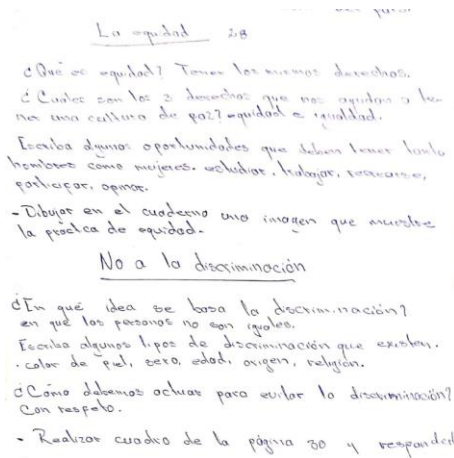 La equidad 28
¿Qué es equidad? Tener los mismos derechos.
¿Cuáles son los 3 derechos que nos ayudan a te-
ner una cultura de paz? equidad e igualdad.
Escriba algunas oportunidades que deben tener tanto
hombres como mujeres. estudiar, trabajar, recrearse,
participar, opinar.
- Dibujar en el cuaderno una imagen que muestre
la práctica de equidad.
No a la discriminación
¿En qué idea se basa la discriminación?
en que las personas no son iguales.
Escriba algunos tipos de discriminación que existen.
. color de piel, sexo, edad, origen, religión.
¿Cómo debemos actuar para evitar la discriminación?
Con respeto.
- Realizar cuadro de la página 30 y responder